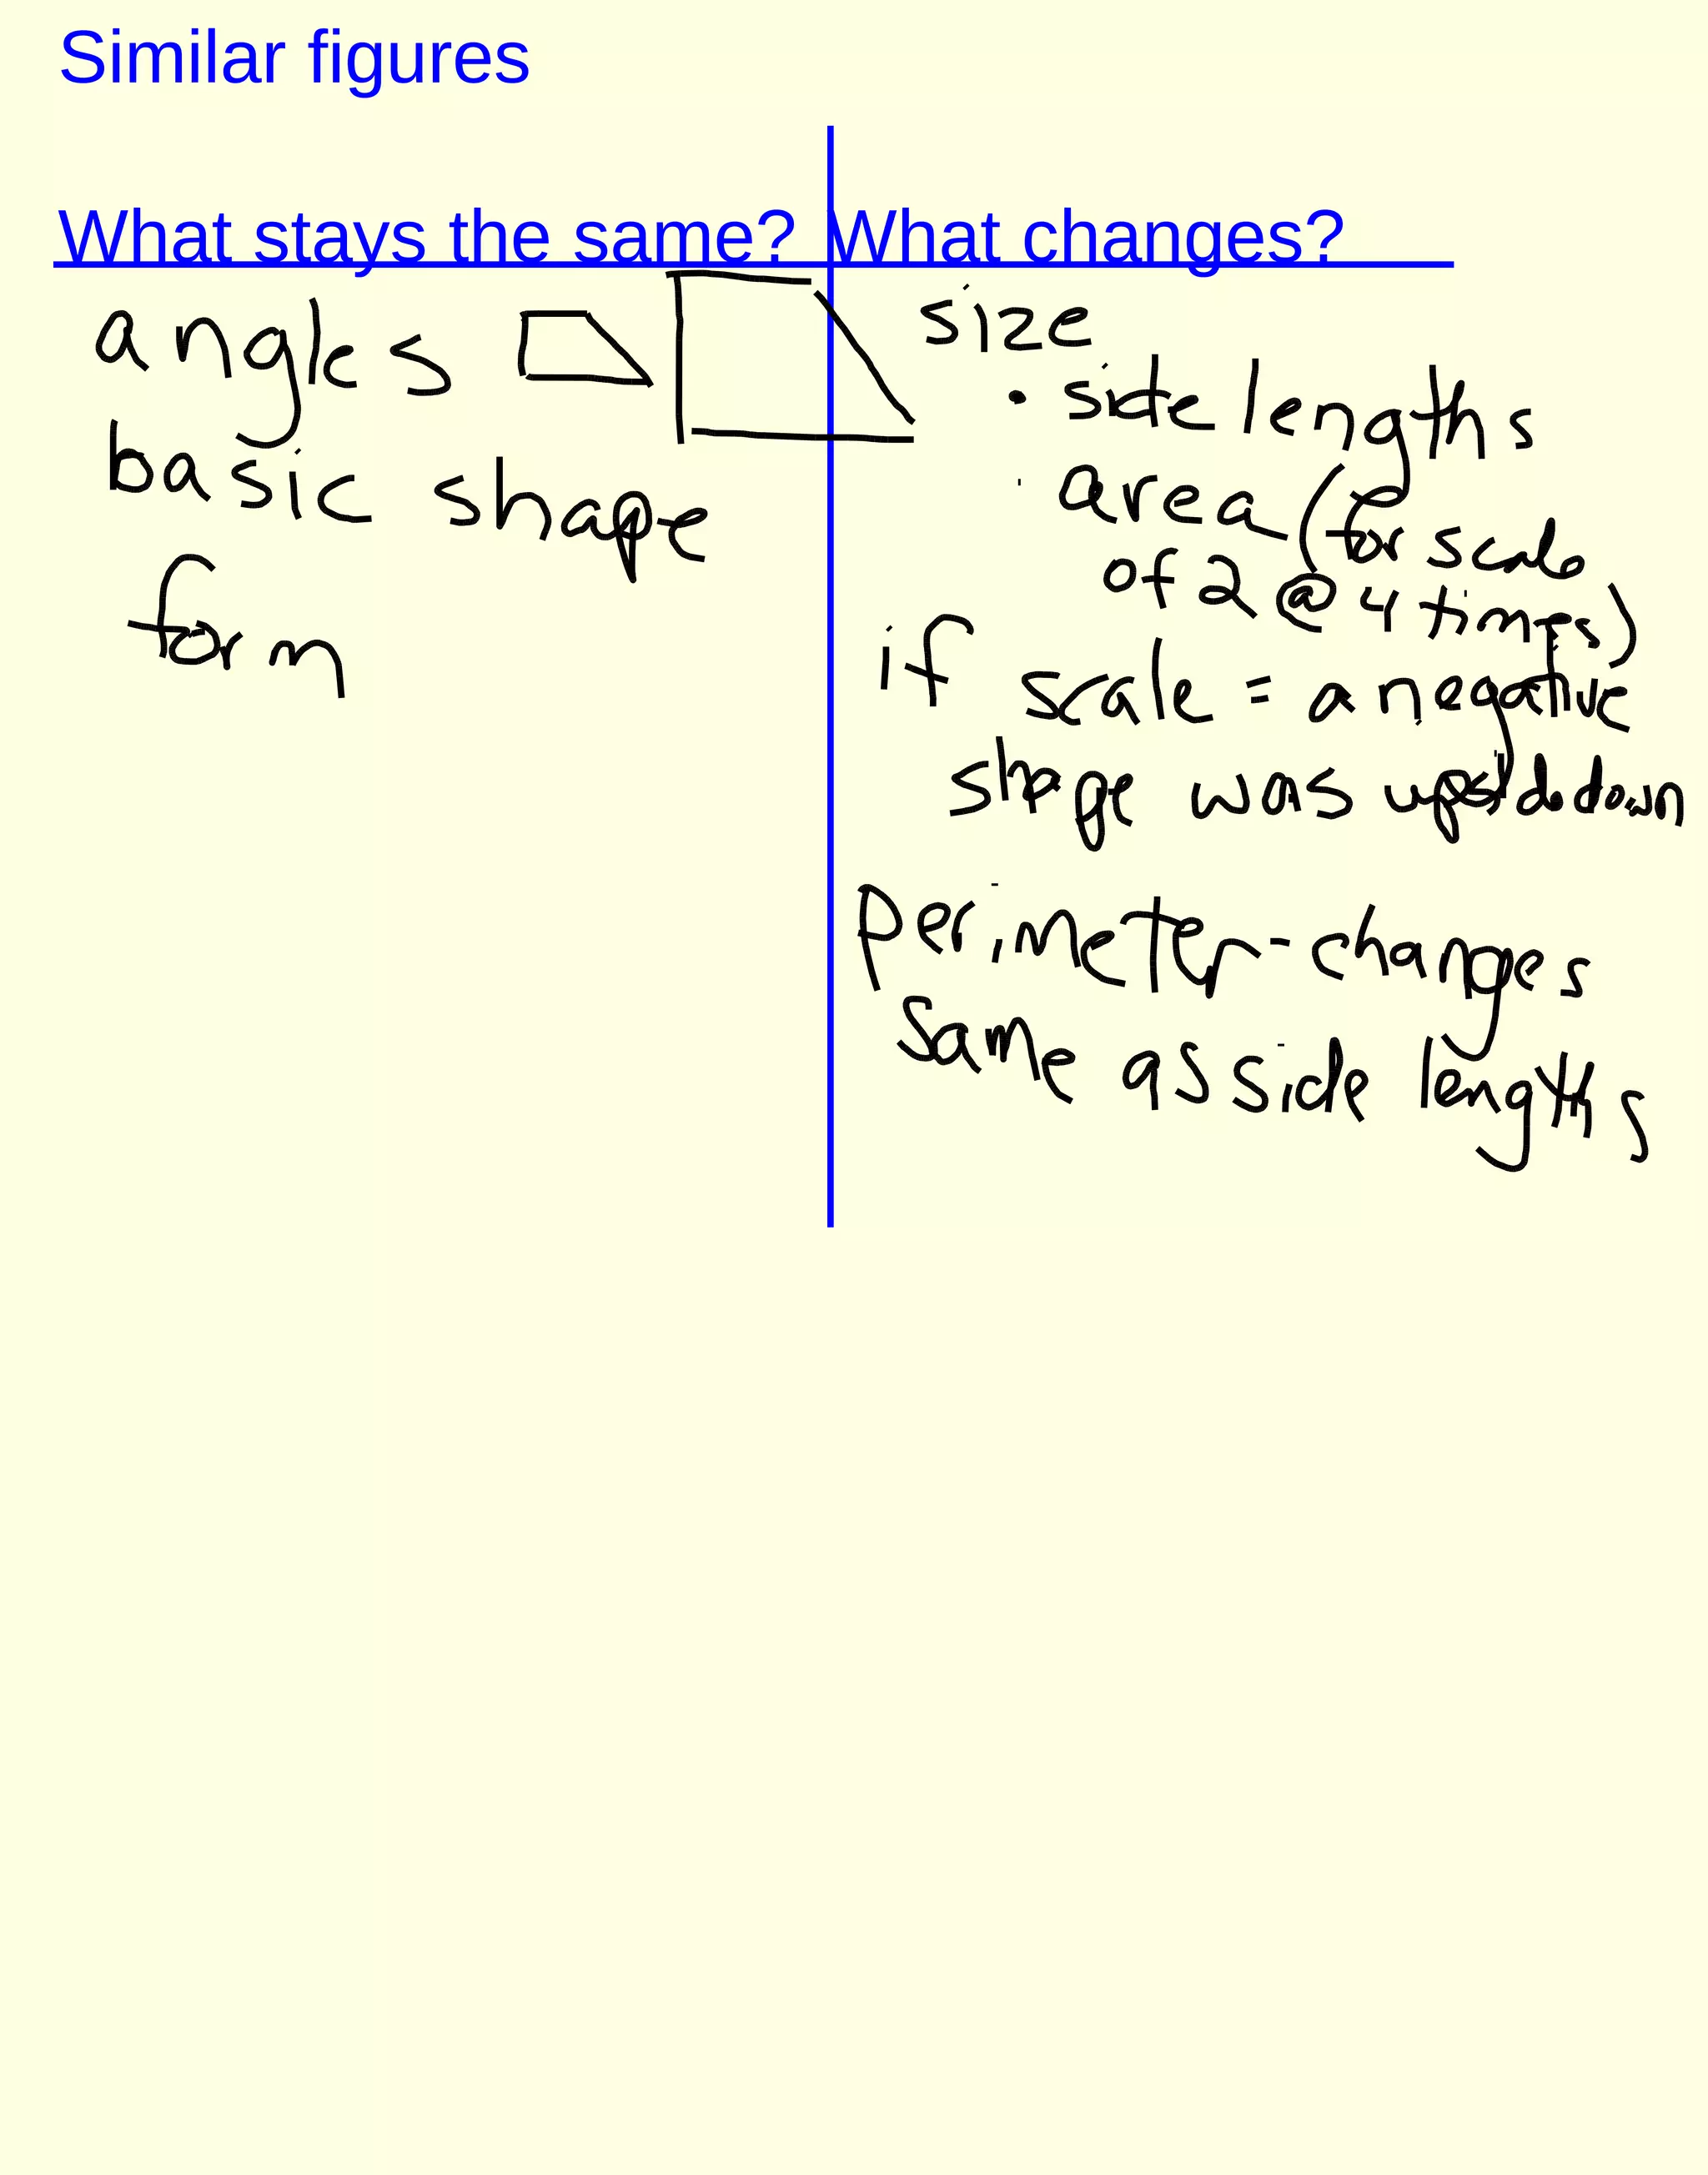 Similar figures
What stays the same? What changes?
angles
basic shape
form
size
• side lengths
• area (for scale
of 2 @ 4 times)
if scale = a negative
shape was down
perimeter - changes
same as side lengths